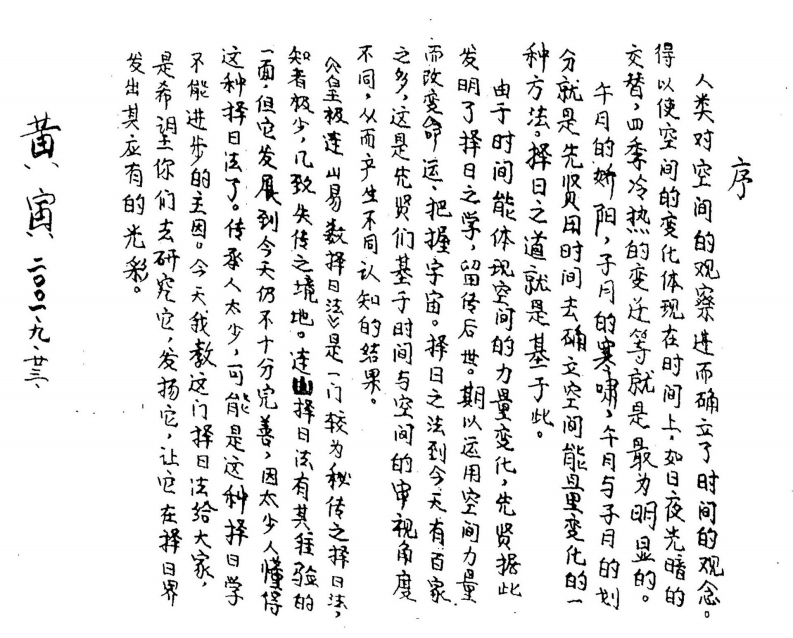 序
人类对空间的观察进而确立了时间的观念。
得以使空间的变化体现在时间上，如日夜光暗的
交替，四季冷热的变迁等就是最为明显的。
午月的娇阳，子月的寒啸，午月与子月的划
分就是先贤用时间去确立空间能量变化的一
种方法。择日之道就是基于此。
由于时间能体现空间的力量变化，先贤据此
发明了择日之学，留传后世。期以运用空间力量
而改变命运、把握宇宙。择日之法到今天有百家
之多，这是先贤们基于时间与空间的审视角度
不同，从而产生不同认知的结果。
《皇极连山易数择日法》是一门较为秘传之择日法，
知者极少，几致失传之境地。连山择日法有其经验的
一面，但它发展到今天仍不十分完善，因太少人懂得
这种择日法了。传承人太少，可能是这种择日学
不能进步的主因。今天我教这门择日法给大家，
是希望你们去研究它，发扬它，让它在择日界
发出其应有的光彩。
黄寅 二〇〇一、九、廿三、